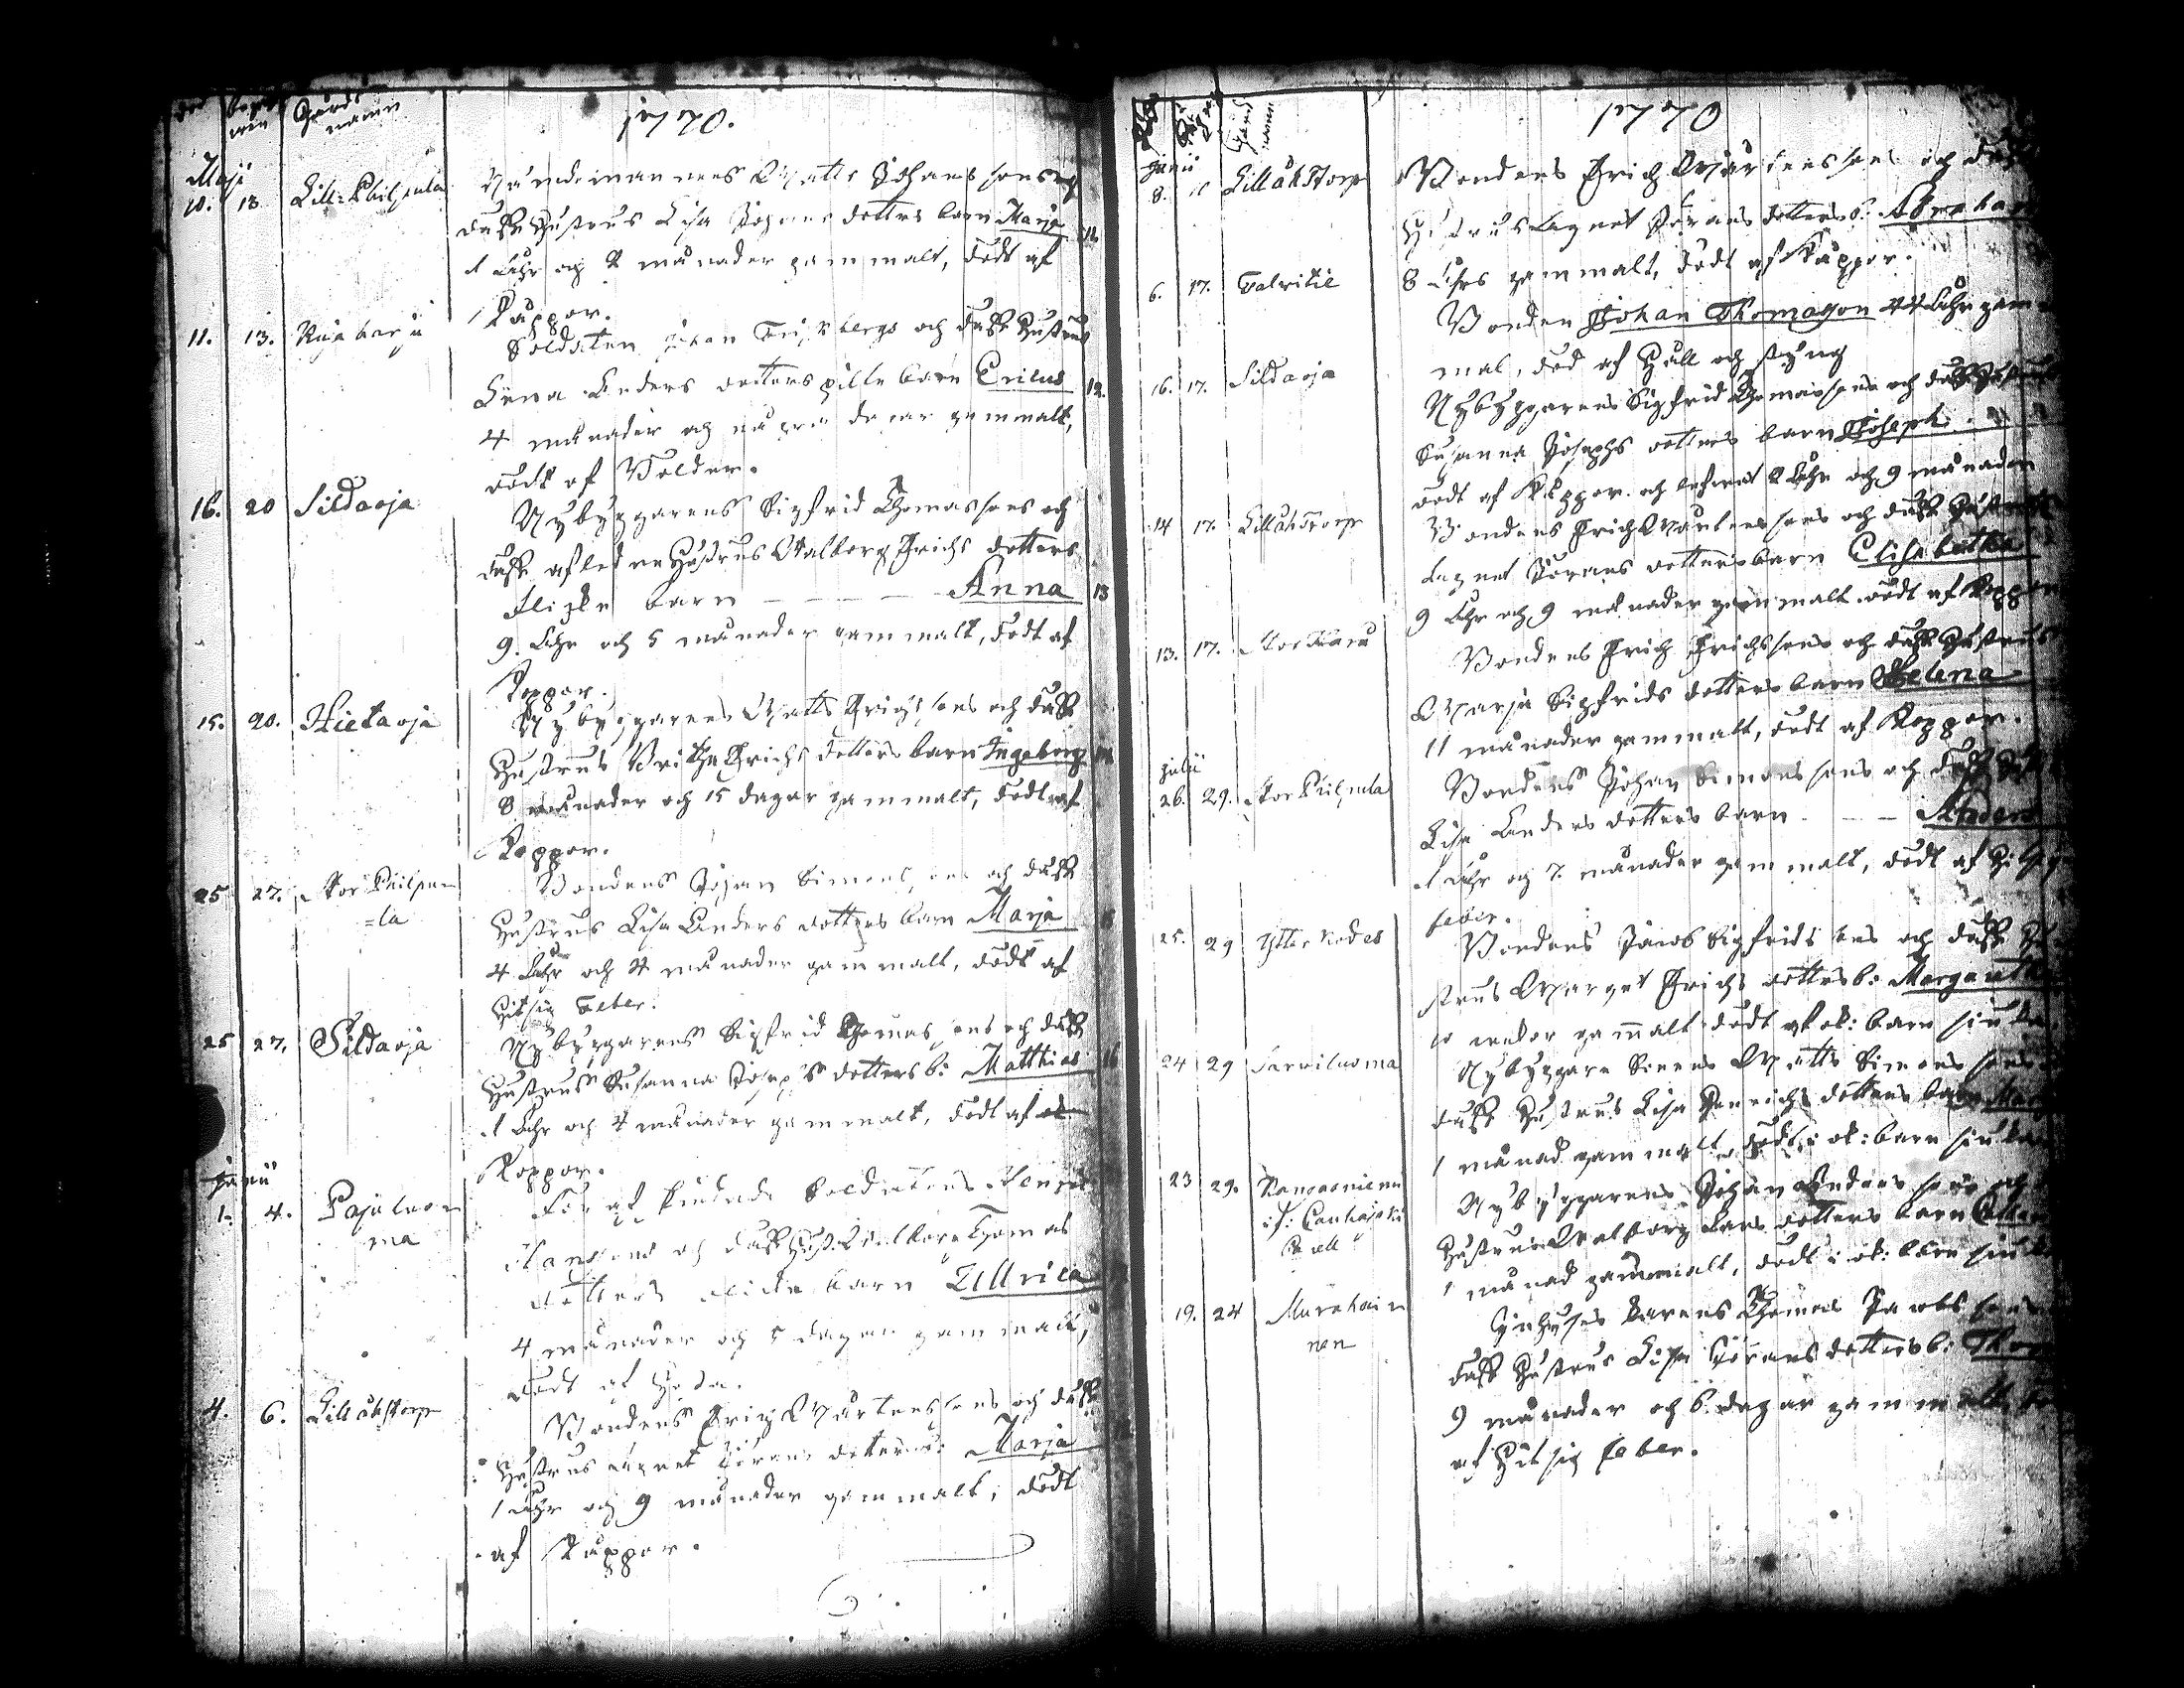 död begraf
wen Gårds
namn
1770.
Maji
10. 13 Lill-Philpula Nämdemannens Matts Johanssons och
dess Hustrus Lisa Johans dotters barn Marja 11.
1 Åhr och 2 månader gammalt, dödt af
Kåppor.
11. 13. Soldaten Johan och dess Hustrus
Anders dotters pille barn Ericus 12.
4 månader och några dagar gammalt,
dödt af
16. 20 Sildaoja Nybyggarens Sigfrid Thomassons och
dess afledne Hustrus Walborg Erichs dotters
flicke barn - - - Anna 13
9. Åhr och 5 månader gammalt, dödt af
Koppor.
15. 20. Hietaoja Nybyggarens Matts Erichssons och dess
Hustrus Britha Erichs dotters barn Ingeborg
8 månader och 15 dagar gammalt, dödt af
Koppor.
25 27. Stor Philpu-
=la Bondens Johan Simonssons och dess
Hustrus Lisa Anders dotters barn Marja
4 Åhr och 4 månader gammalt, dödt af
Hitsig Feber.
25 27. Sildaoja Nybyggarens Sigfrid Thomassons och dess
Hustrus Susanna Josephs dotters b: Matthias 16
1 Åhr och 4 månader gammalt, dödt af
Koppor.
Junii
1. 4. Pajuluo-
ma Soldatens
Hanssons och dess Hust. Walborg Thomas
dotters flicke barn Ullrica
4 månader och 5 dagar gammalt,
dödt af
4. 6. Lillåhstorp Bondens Erich Mårtenssons och dess
Hustrus Agnet Jörans dotters b: Marja
1 Åhr och 9 månader gammalt, dödt
af Kåppor.
1770
Gård
namn
Junii
8. Lillåhstorp Bondens Erich Mårtenssons och dess
Hustrus Agnet Jörans dotters b: Abraham
8 Åhrs gammalt, dödt af Kåppor.
6. 17. Talvitie Bonden Johan Thomasson 44 Åhr gam-
mal, död af Håll och styng
16. 17. Sildaoja Nybyggarens Sigfrid Thomassons och dess Hustrus
Susanna Josephs dotters barn Joseph
dödt af Koppor och lefwat 2 Åhr och 9 månader
14 17. Lillåhstorp Bondens Erich Mårtenssons och dess Hustrus
Agnet Jörans dotters barn Elisabetha
9 Åhr och 9 månader gammalt. dödt af Koppor
13. 17. Stor Karu Bondens Erich Erichssons och dess Hustrus
Marja Sigfrids dotters barn Helena
11 månader gammalt, dödt af Koppor.
Julii
26. 29. Stor Philpula Bondens Johan Simonssons och dess
Lisa Anders dotters barn - - Anders
1 Åhr och 7. månader gammalt, dödt af Hitsig
feber.
25. 29 Ytter Kodes Bondens Jacob Sigfrids sons och dess Hu-
strus Marget Erichs dotters b: Margaretha
10 wekor gammalt dödt af ok: barn siuka
24 29 Sarwiluoma Nybyggare Sonens Matts Simonssons
dess Hustrus Lisa Henrichs dotters barn
1 månad gammalt, dödt i ok: barn siuka
23 29. Nybyggarens Johan Anders sons och
Hustrus Walborg Lars dotters barn
1 månad gammalt, dödt i ok: barn siuka
19. 24 Murahain-
nen Inhyses karens Thomas Jacobs sons
dess Hustrus Lisa Jörans dotters b:
9 månader och 6. dagar gammalt,
af Hitsig feber.